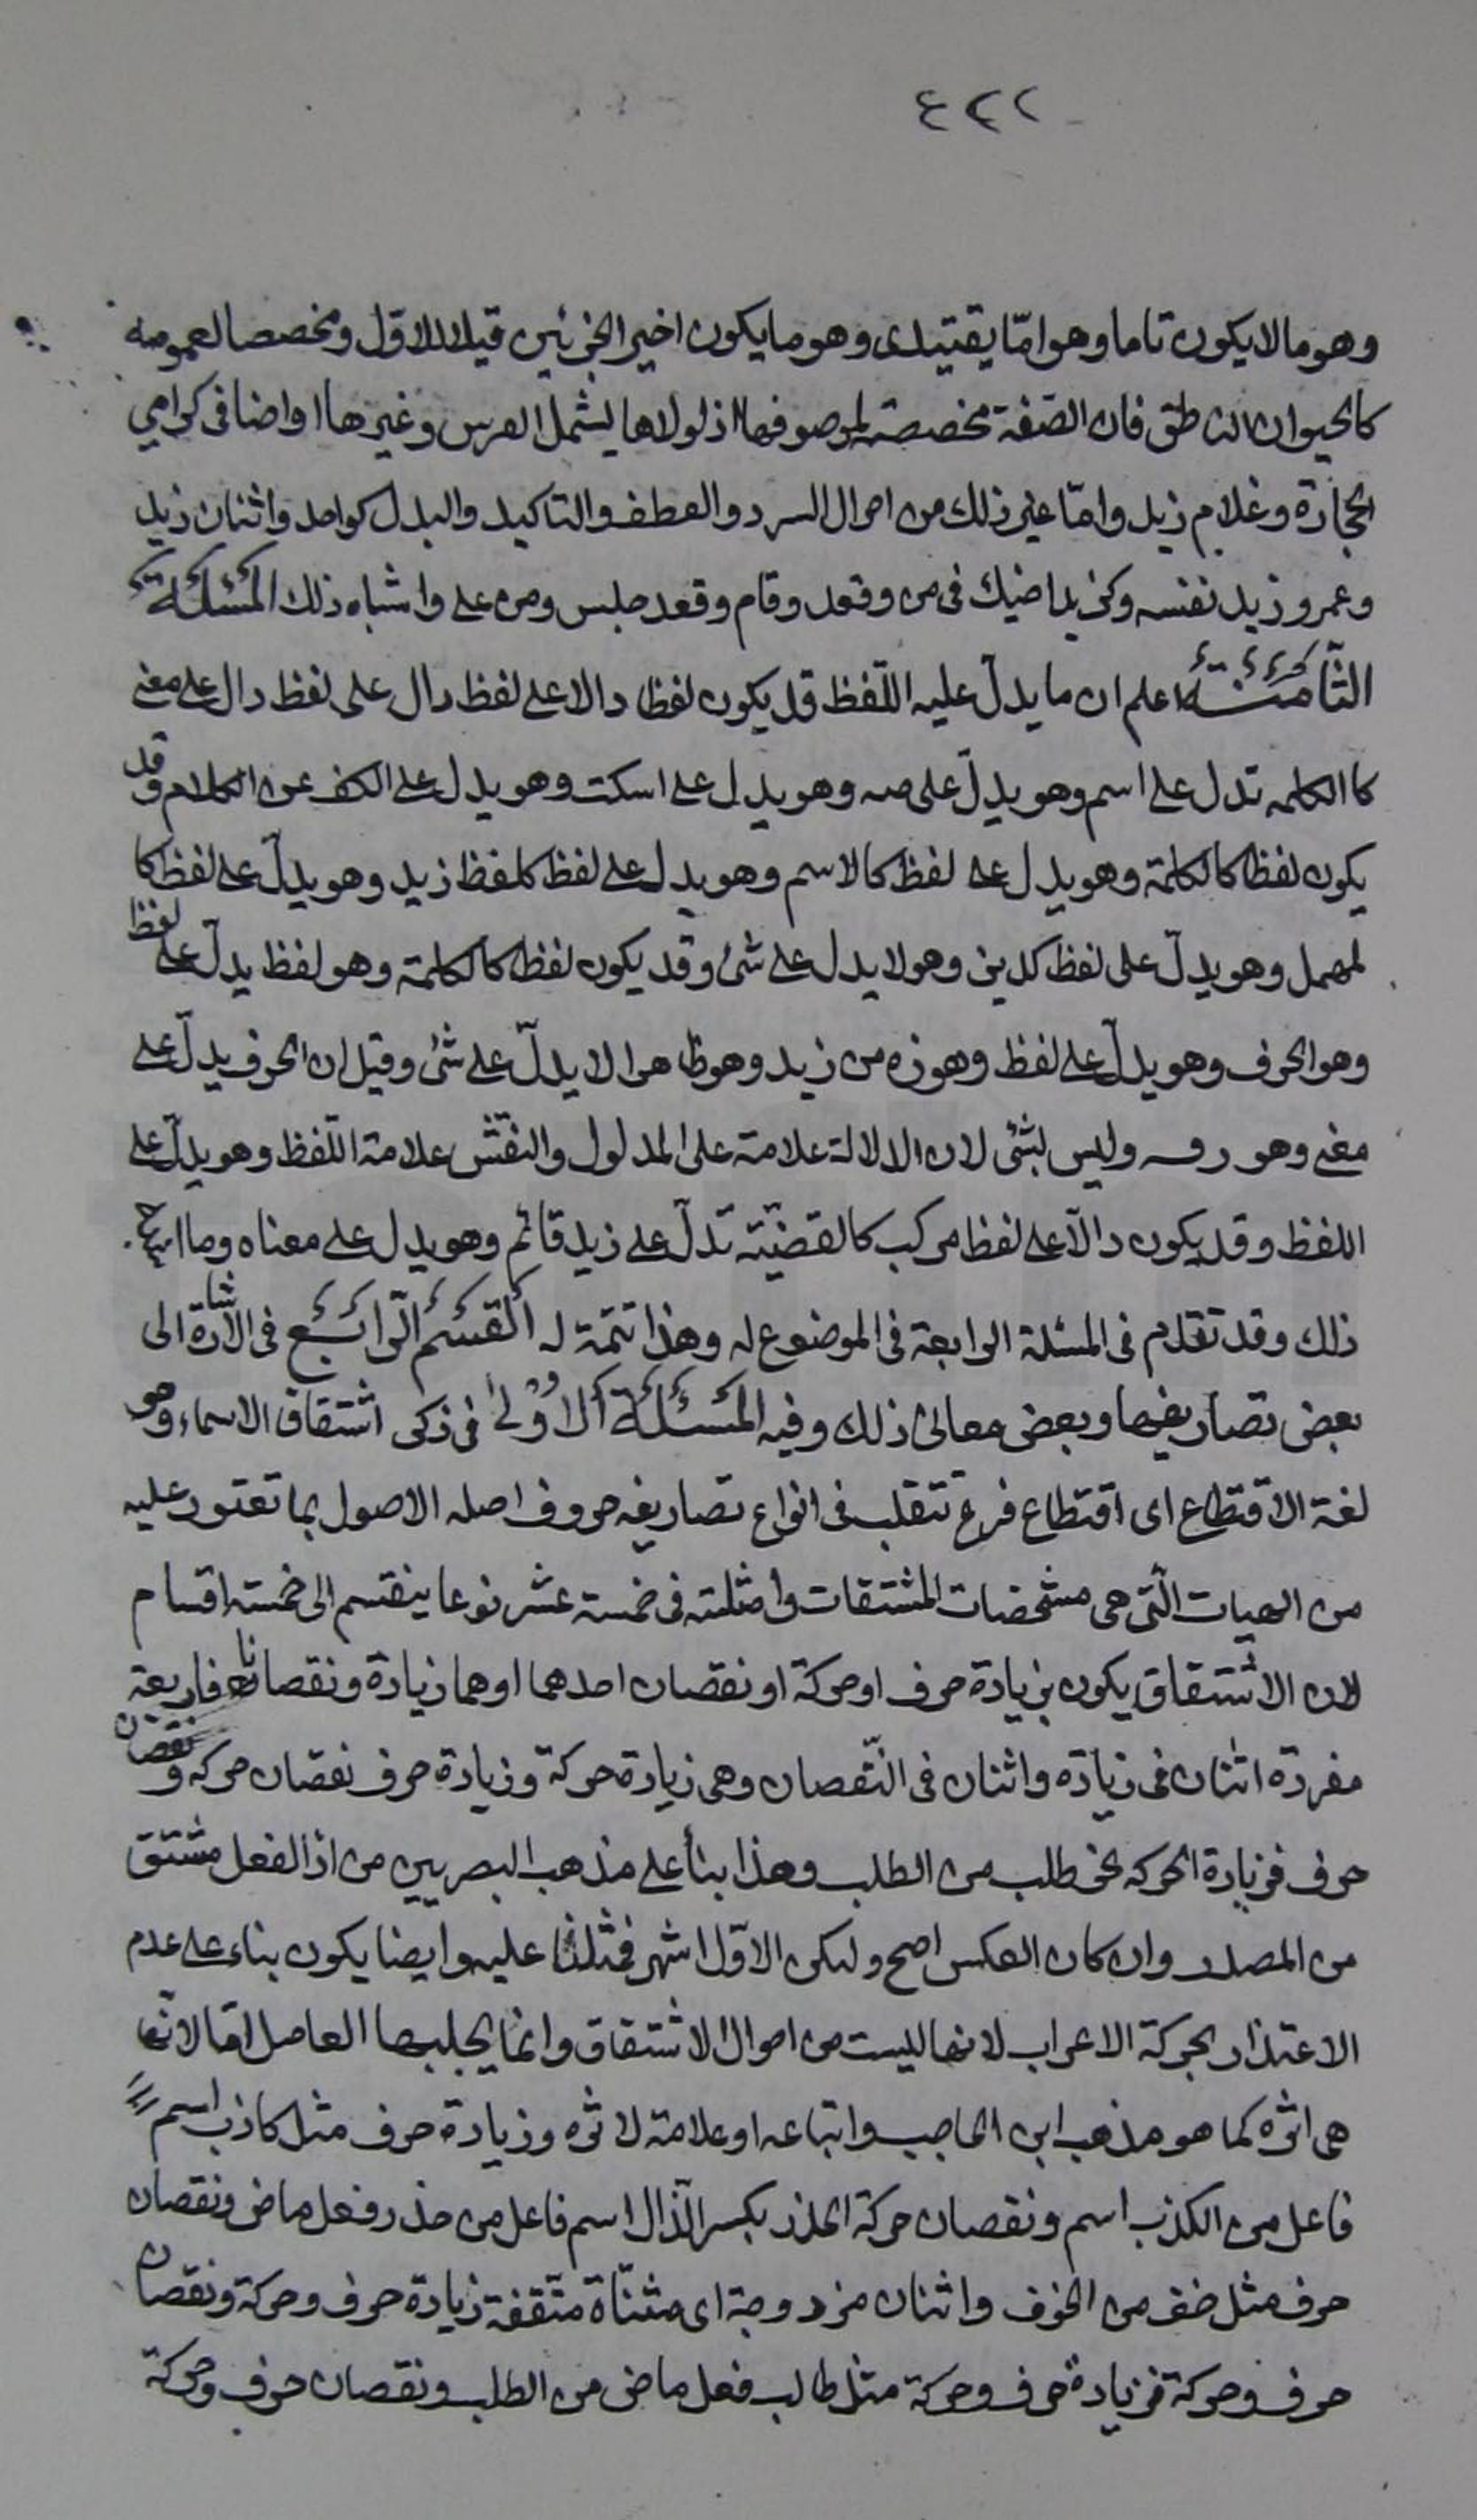 ٤٢٢
وهو ما لا يكون تاما وهو امّا يقتيدى وهو ما يكون اخير الجزئين قيلا للاوّل ومخصصا لعمومه
كالحيوان الناطق فان الصّفة مخصصة لموصوفها اذ لولاها ليشمل الفرس وغيرها او اضافى كرامى
الحجارة وغلام زيد وامّا غير ذلك من احوال السرد والعطف والتاكيد والبدل كواحد واثنان زيد
وعمرو زيد نفسه وكزيد اخيك فى من وقعد وقام وقعد جلس ومن على واشباه ذلك المسئلة
الثّامنة اعلم ان ما يدلّ عليه اللّفظ قد يكون لفظا دالا على لفظ دال على لفظ دال على معنى
كالكلمه تدل على اسم وهو يدلّ على صه وهو يدل على اسكت وهو يدل على الكف عن الكلام وقد
يكون لفظا كالكلمة وهو يدل على لفظ كالاسم وهو يدل على لفظ كلفظ زيد وهو يدلّ على لفظ كا
لمهمل وهو يدلّ على لفظ كديز وهو لا يدل على شئ وقد يكون لفظا كالكلمة وهو لفظ يدلّ على لفظ
وهو الحرف وهو يدلّ على لفظ وهو زه من زيد وهو ظاهرا لا يدلّ على شئ وقيل ان الحرف يدلّ على
معنى وهو رقمه وليس بشئ لان الدلالة علامة على المدلول والنقش علامة اللّفظ وهو يدلّ على
اللفظ وقد يكون دالّا على لفظ مركب كالقضيّة تدلّ على زيد قائم وهو يدل على معناه وما اشبه
ذلك وقد تقدم فى المسئلة الرابعة فى الموضوع له وهذا تتمة له القسم الرّابع فى الاشارة الى
بعض تصاريفها وبعض معانى ذلك وفيه المسئلة الاولى فى ذكر اشتقاق الاسماء وهو
لغة الاقتطاع اى اقتطاع فرع تتقلب فى انواع تصاريفه حروف اصله الاصول بما تعتور عليه
من الهيات الّتى هى مشخصات المشتقات وامثلته فى خمسة عشر نوعا ينقسم الى خمسة اقسام
لان الاشتقاق يكون بزيادة حرف او حركة او نقصان احدهما او هما زيادة ونقصانا فاربعة
مفردة اثنان فى زيادة واثنان فى النّقصان وهى زيادة حركة وزيادة حرف نقصان حركه ونقصان
حرف فزيادة الحركه نحو طلب من الطلب وهذا بناء على مذهب البصريين من ان الفعل مشتق
من المصدر وان كان العكس اصح ولكن الاوّل اشهر فمثلنا عليه وايضا يكون بناء على عدم
الاعتداد بحركة الاعراب لانها ليست من احوال الاشتقاق وانما يجلبها العامل امّا لانّها
هى اثره كما هو مذهب ابن الحاجب واتباعه او علامة لاثره وزيادة حرف مثل كاذب اسم
فاعل من الكذب اسم ونقصان حركة الحذر بكسر الذّال اسم فاعل من حذر وفعل ماض ونقصان
حرف مثل خف من الخوف واثنان مزدوجة اى مثنّاة متّقفة زيادة حرف وحركة ونقصان
حرف وحركة فزيادة حرف وحركة مثل طالب فعل ماض من الطلب ونقصان حرف وحركة